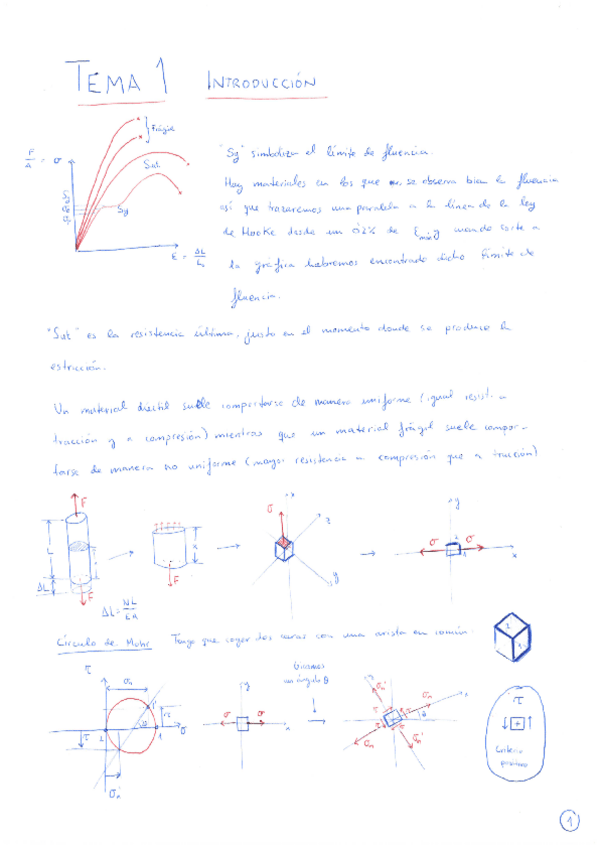 TEMA 1 INTRODUCCIÓN
Frágil
F/A = σ
Sut
Sy
ε = ΔL/L₀
"Sy" simboliza el límite de fluencia.
Hay materiales en los que no se observa bien la fluencia
así que trazaremos una paralela a la línea de la ley
de Hooke desde un 0'2% de Emáx y cuando corte a
la gráfica habremos encontrado dicho límite de
fluencia.
"Sut" es la resistencia última, justo en el momento donde se produce la
estricción.
Un material dúctil suele comportarse de manera uniforme (igual resist. a
tracción y a compresión) mientras que un material frágil suele compor-
tarse de manera no uniforme (mayor resistencia a compresión que a tracción)
F
L
ΔL
F
ΔL = NL/EA
x
F
σ
x
z
y
y
σ σ
x
Círculo de Mohr Tengo que coger dos caras con una arista en común.
1
τ
σn
τ
σ
2
1
τ
σn'
y
σ σ
x
Giramos
un ángulo θ
σn'
σn
θ
σn
σn'
τ
Criterio
positivo
1